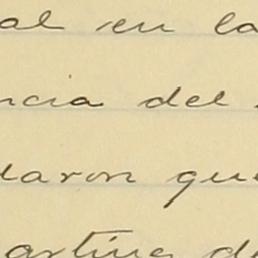 al en la
ncia del
laron que
artino de